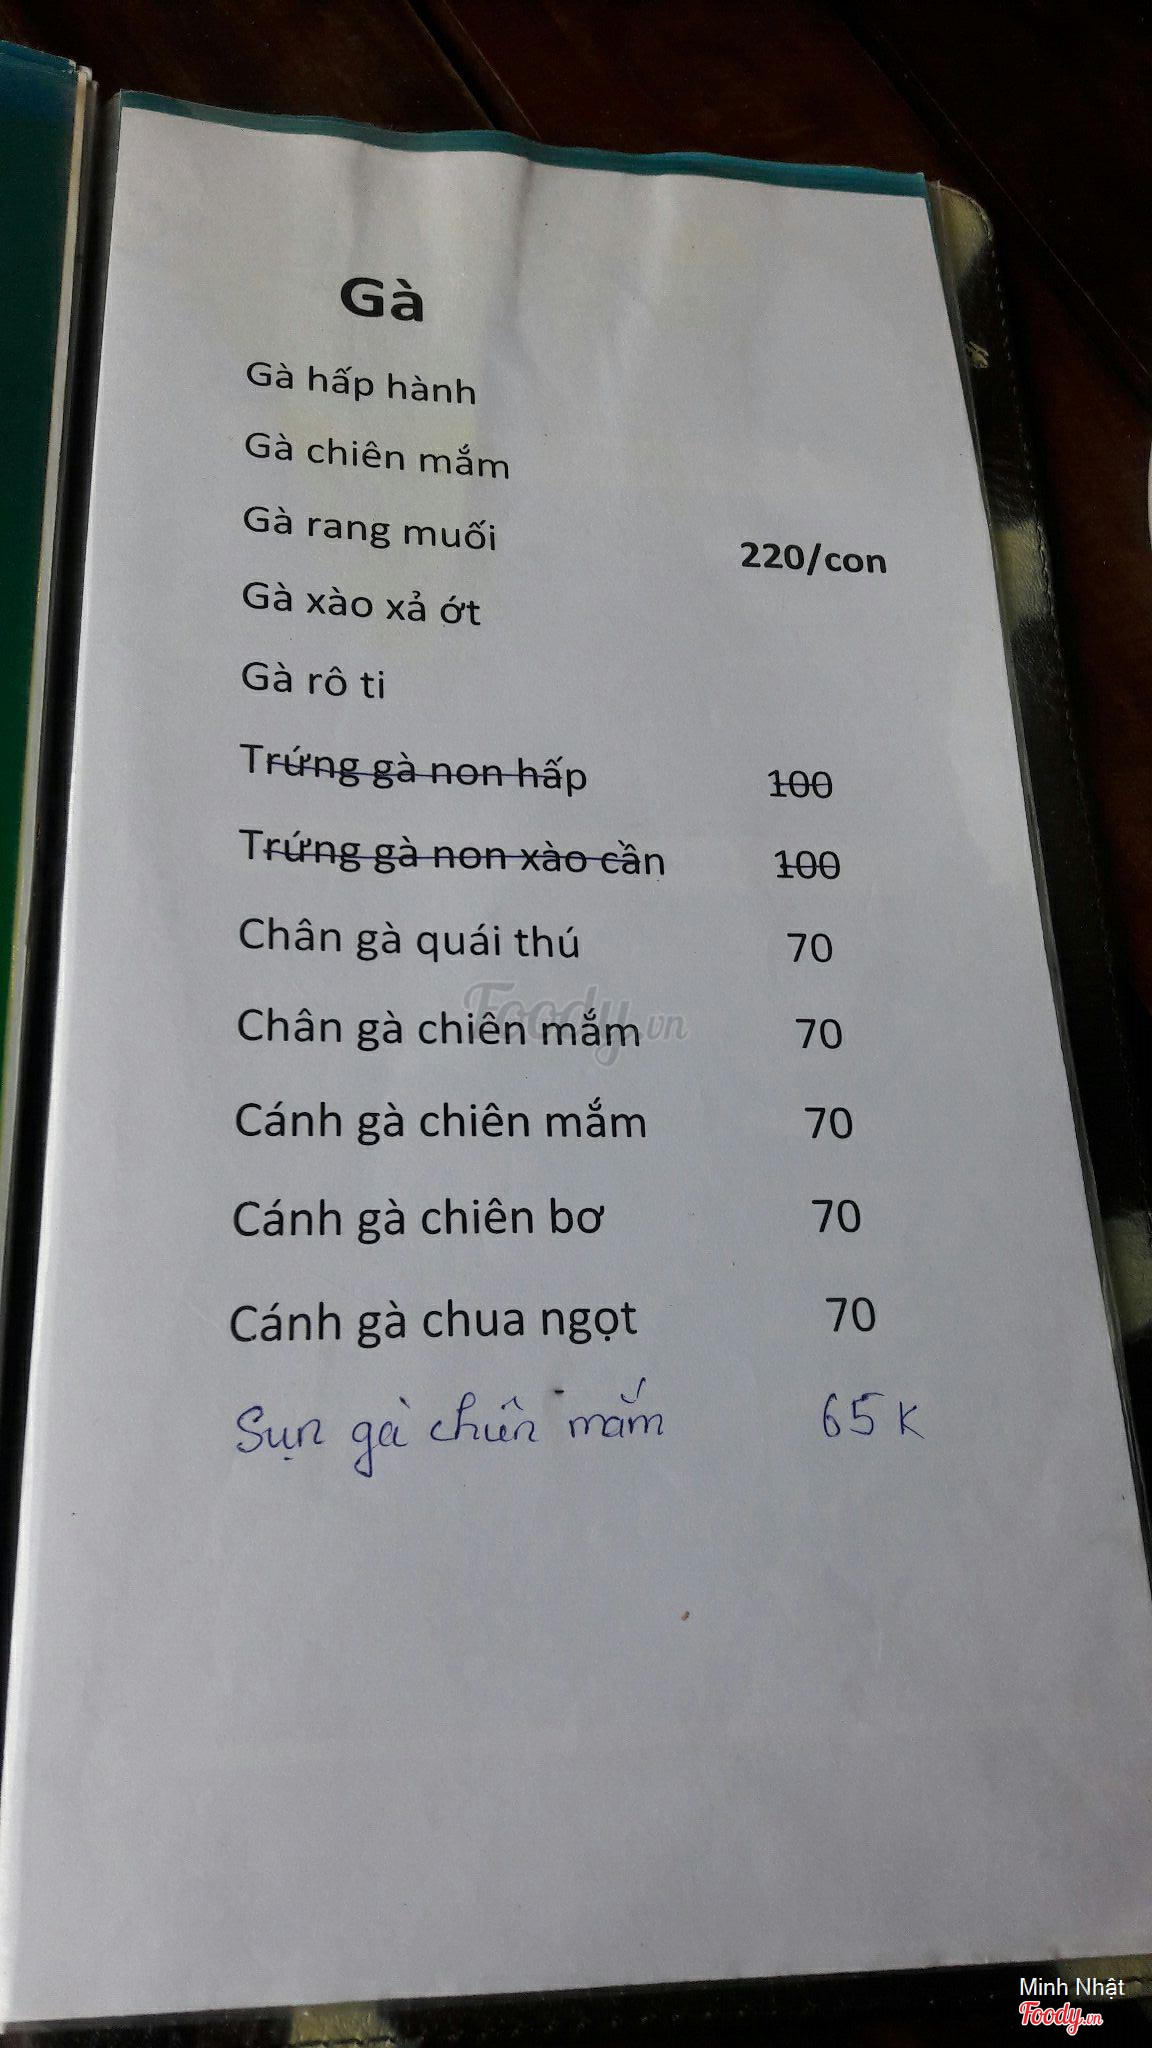 Gà
Gà hấp hành
Gà chiên mắm
Gà rang muối
220/con
Gà xào xả ớt
Gà rô ti
Trứng gà non hấp 100
Trứng gà non xào cần 100
Chân gà quái thú 70
Foody.vn
Chân gà chiên mắm 70
Cánh gà chiên mắm 70
Cánh gà chiên bơ 70
Cánh gà chua ngọt 70
Sụn gà chiên mắm 65 K
Minh Nhật
Foody.vn